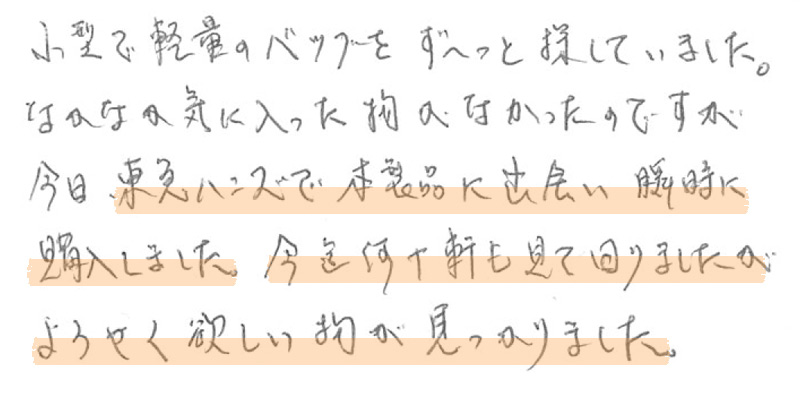 小型で軽量のバッグをずーっと探していました。
なかなか気に入った物がなかったのですが
今日東急ハンズで本製品に出会い瞬時に
購入しました。今迄何十軒も見て回りましたが
ようやく欲しい物が見つかりました。